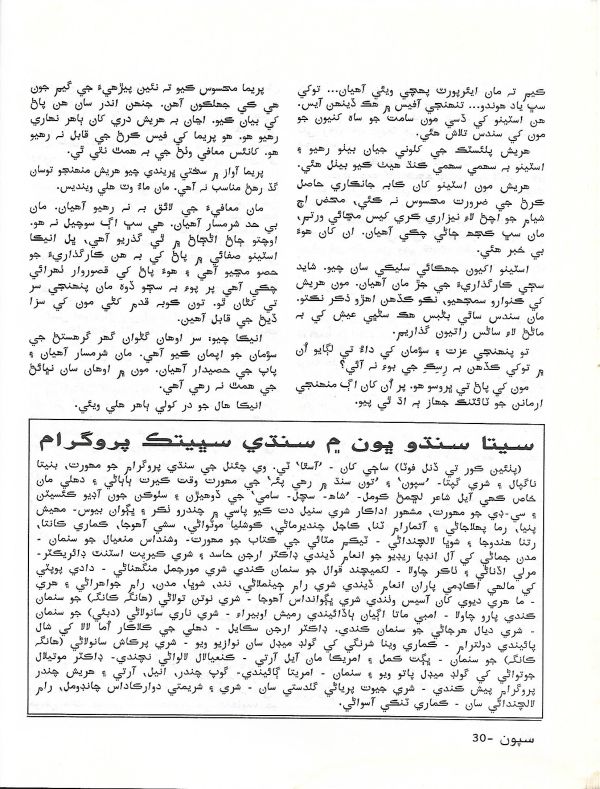 ڪيم ته مان ايئرپورٽ پهچي ويئي آهيان... توکي
سڀ ياد هوندو... تنهنجي آفيس ۾ هڪ ڏينهن آيس.
هن اسٽينو کي ڏسي مون سامت جو ساهه کنيون جو
مون کي سندس تلاش هئي.
هريش پلئسٽڪ جي کلوني جيان بيٺو رهيو ۽
اسٽينو به سهمي سهمي ڪنڌ هيٺ ڪيو بيٺل هئي.
هريش مون اسٽينو کان ڪابه جانڪاري حاصل
ڪرڻ جي ضرورت محسوس نه ڪئي، محض اڄ
شيام جو اچڻ لاءِ نيزاري ڪري ڪيس مچائي ورتم،
مان سڀ ڪجهه ڄاڻي چڪي آهيان. ان کان هوءَ
بي خبر هئي.
اسٽينو اکيون جهڪائي سليڪي سان چيو. شايد
سڄي ڪارگذاريءَ جي جڙ مان آهيان. مون هريش
کي ڪنوارو سمجهيو، نڪو ڪڏهن اهڙو ذڪر نڪتو.
مان سندس ساٿي بڻجس هڪ سٺي عيش کي به
ماڻڻ لاءِ ساڻس راتيون گذاريم.
تو پنهنجي عزت ۽ سؤمان کي داءُ تي لڳايو اُن
۾ توکي ڪڏهن به رسڪ جي بوءِ نه آئي؟
مون کي پاڻ تي ڀروسو هو. پر اُن کان اڳ منهنجي
ارمانن جو ٽائٽنڪ جهاز ٻه اڌ ٿي پيو.
پريما محسوس ڪيو ته نئين پيڙهيءَ جي گيم جون
هي ڪي جهلڪون آهن. جنهن اندر سان هن پاڻ
کي بيان ڪيو. اڃان به هريش دري کان ٻاهر نهاري
رهيو هو. هو پريما کي فيس ڪرڻ جي قابل نه رهيو
هو. کانئس معافي وٺڻ جي به همٿ نقي ٿي.
پريما آواز ۾ سختي ڀريندي چيو هريش منهنجو توسان
گڏ رهڻ مناسب نه آهي. مان ماءُ وٽ هلي وينديس.
مان معافيءَ جي لائق به نه رهيو آهيان. مان
بي حد شرمسار آهيان. هي سڀ اڳ سوچيل نه هو.
اوچتو ڄاڻ اڻڄاڻ ۾ ٿي گذريو آهي، ڀل انيڪا
اسٽينو صفائي ۾ پاڻ کي به هن ڪارگذاريءَ جو
حصو مڃيو آهي ۽ هوءَ پاڻ کي قصوروار ٺهرائي
چڪي آهي پر پوءِ به سڄو ڏوهه مان پنهنجي سر
تي کڻان ٿو. تون ڪوبه قدم کڻي مون کي سزا
ڏيڻ جي قابل آهين.
انيڪا چيو، سر اوهان گڻوان گهر گرهستڻ جي
سؤمان جو اپمان ڪيو آهي. مان شرمسار آهيان ۽
پاپ جي حصيدار آهيان. مون ۾ اوهان سان نڀائڻ
جي همٿ نه رهي آهي.
انيڪا هال جو در کولي ٻاهر هلي ويئي.
سيتا سنڌو ڀون ۾ سنڌي سڀيتڪ پروگرام
(پنئين ڪور تي ڏنل فوٽا) ساڄي کان - 'آستا' ٽي. وي چئنل جي سنڌي پروگرام جو مهورت، بنيتا
ناگپال ۽ شري گپتا- 'سپون' ۽ 'تون سنڌ ۾ رهي پئه' جي مهورت وقت ڪيرت ٻاٻاڻي ۽ دهلي مان
خاص ڪهي آيل شاعر لڇمڻ ڪومل- 'شاهه- سچل- سامي' جي ڏوهيڙن ۽ سلوڪن جون آڊيو ڪئسيٽن
۽ سي-ڊي جو مهورت، مشهور اداڪار شري سنيل دت ڪيو پاسي ۾ چندرو ٺڪر ۽ ڀڳوان بيوس- مهيش
پنيا، رما پهلاجاڻي ۽ آتمارام ٿنا، ڪاجل چنديرماڻي، ڪوشليا موٽواڻي، سشي آهوجا، ڪماري ڪانتا،
رتنا هندوجا ۽ شوڀا لالچنداڻي - ٽيڪم مٽاڻي جي ڪتاب جو مهورت- وشنداس منعيال جو سنمان -
مدن جماڻي کي آل انڊيا ريڊيو جو انعام ڏيندي ڊاڪٽر ارجن حاسد ۽ شري ڪيرت اسٽنٽ ڊائريڪٽر-
مرلي اڏناڻي ۽ ناڪر چاولا - لکميچند قوال جو سنمان ڪندي شري مورجمل منگهناڻي - دادي پوپٽي
کي مالهي اڪاڊمي پاران انعام ڏيندي شري رام جيٺملاڻي، نند، شوڀا، مدن، رام جواهراڻي ۽ هري
- ما هري ديوي کان آسيس وٺندي شري ڀڳوانداس آهوجا - شري نوتن تولاڻي (هانگ ڪانگ) جو سنمان
ڪندي پارو چاولا - امبي ماتا اڳيان ٻاڌائيندي رميش اوبيراءِ - شري ناري سانولاڻي (دبئي) جو سنمان
- شري ديال هرجاڻي جو سنمان ڪندي. ڊاڪٽر ارجن سڪايل - دهلي جي ڪلاڪار آما لالا کي شال
پائيندي دولترام - ڪماري وينا شرنگي کي گولڊ ميڊل سان نوازيو ويو - شري پرڪاش سانولاڻي (هانگ
ڪانگ) جو سنمان - ڀڳت ڪمل ۽ امريڪا مان آيل آرتي - ڪنعيالال لالواڻي نچندي- ڊاڪٽر موتيلال
جوتواڻي کي گولڊ ميڊل پاتو ويو ۽ سنمان - امريتا ڳائيندي- گوپ چندر، انيل، آرتي ۽ هريش چندر
پروگرام پيش ڪندي - شري جيوت پرياڻي گلدستي سان - شري ۽ شريمتي دوارڪاداس چانڊومل، رام
لالچنداڻي سان - ڪماري ٽنڪي آسواڻي.
سپون -30